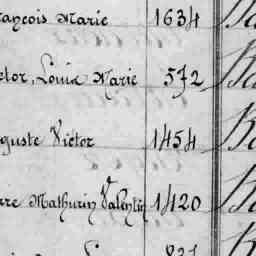 ançois Marie 1634
ctor, Louis Marie 572
guste Victor 1454
rre Mathurin Valentin 1420
821